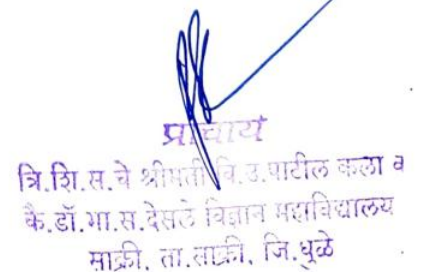 प्राचार्य
त्रि.शि.स.चे श्रीमती वि.उ.पाटील कला व
कै.डॉ.भा.स.देसले विज्ञान महाविद्यालय
साक्री, ता.साक्री, जि.धुळे